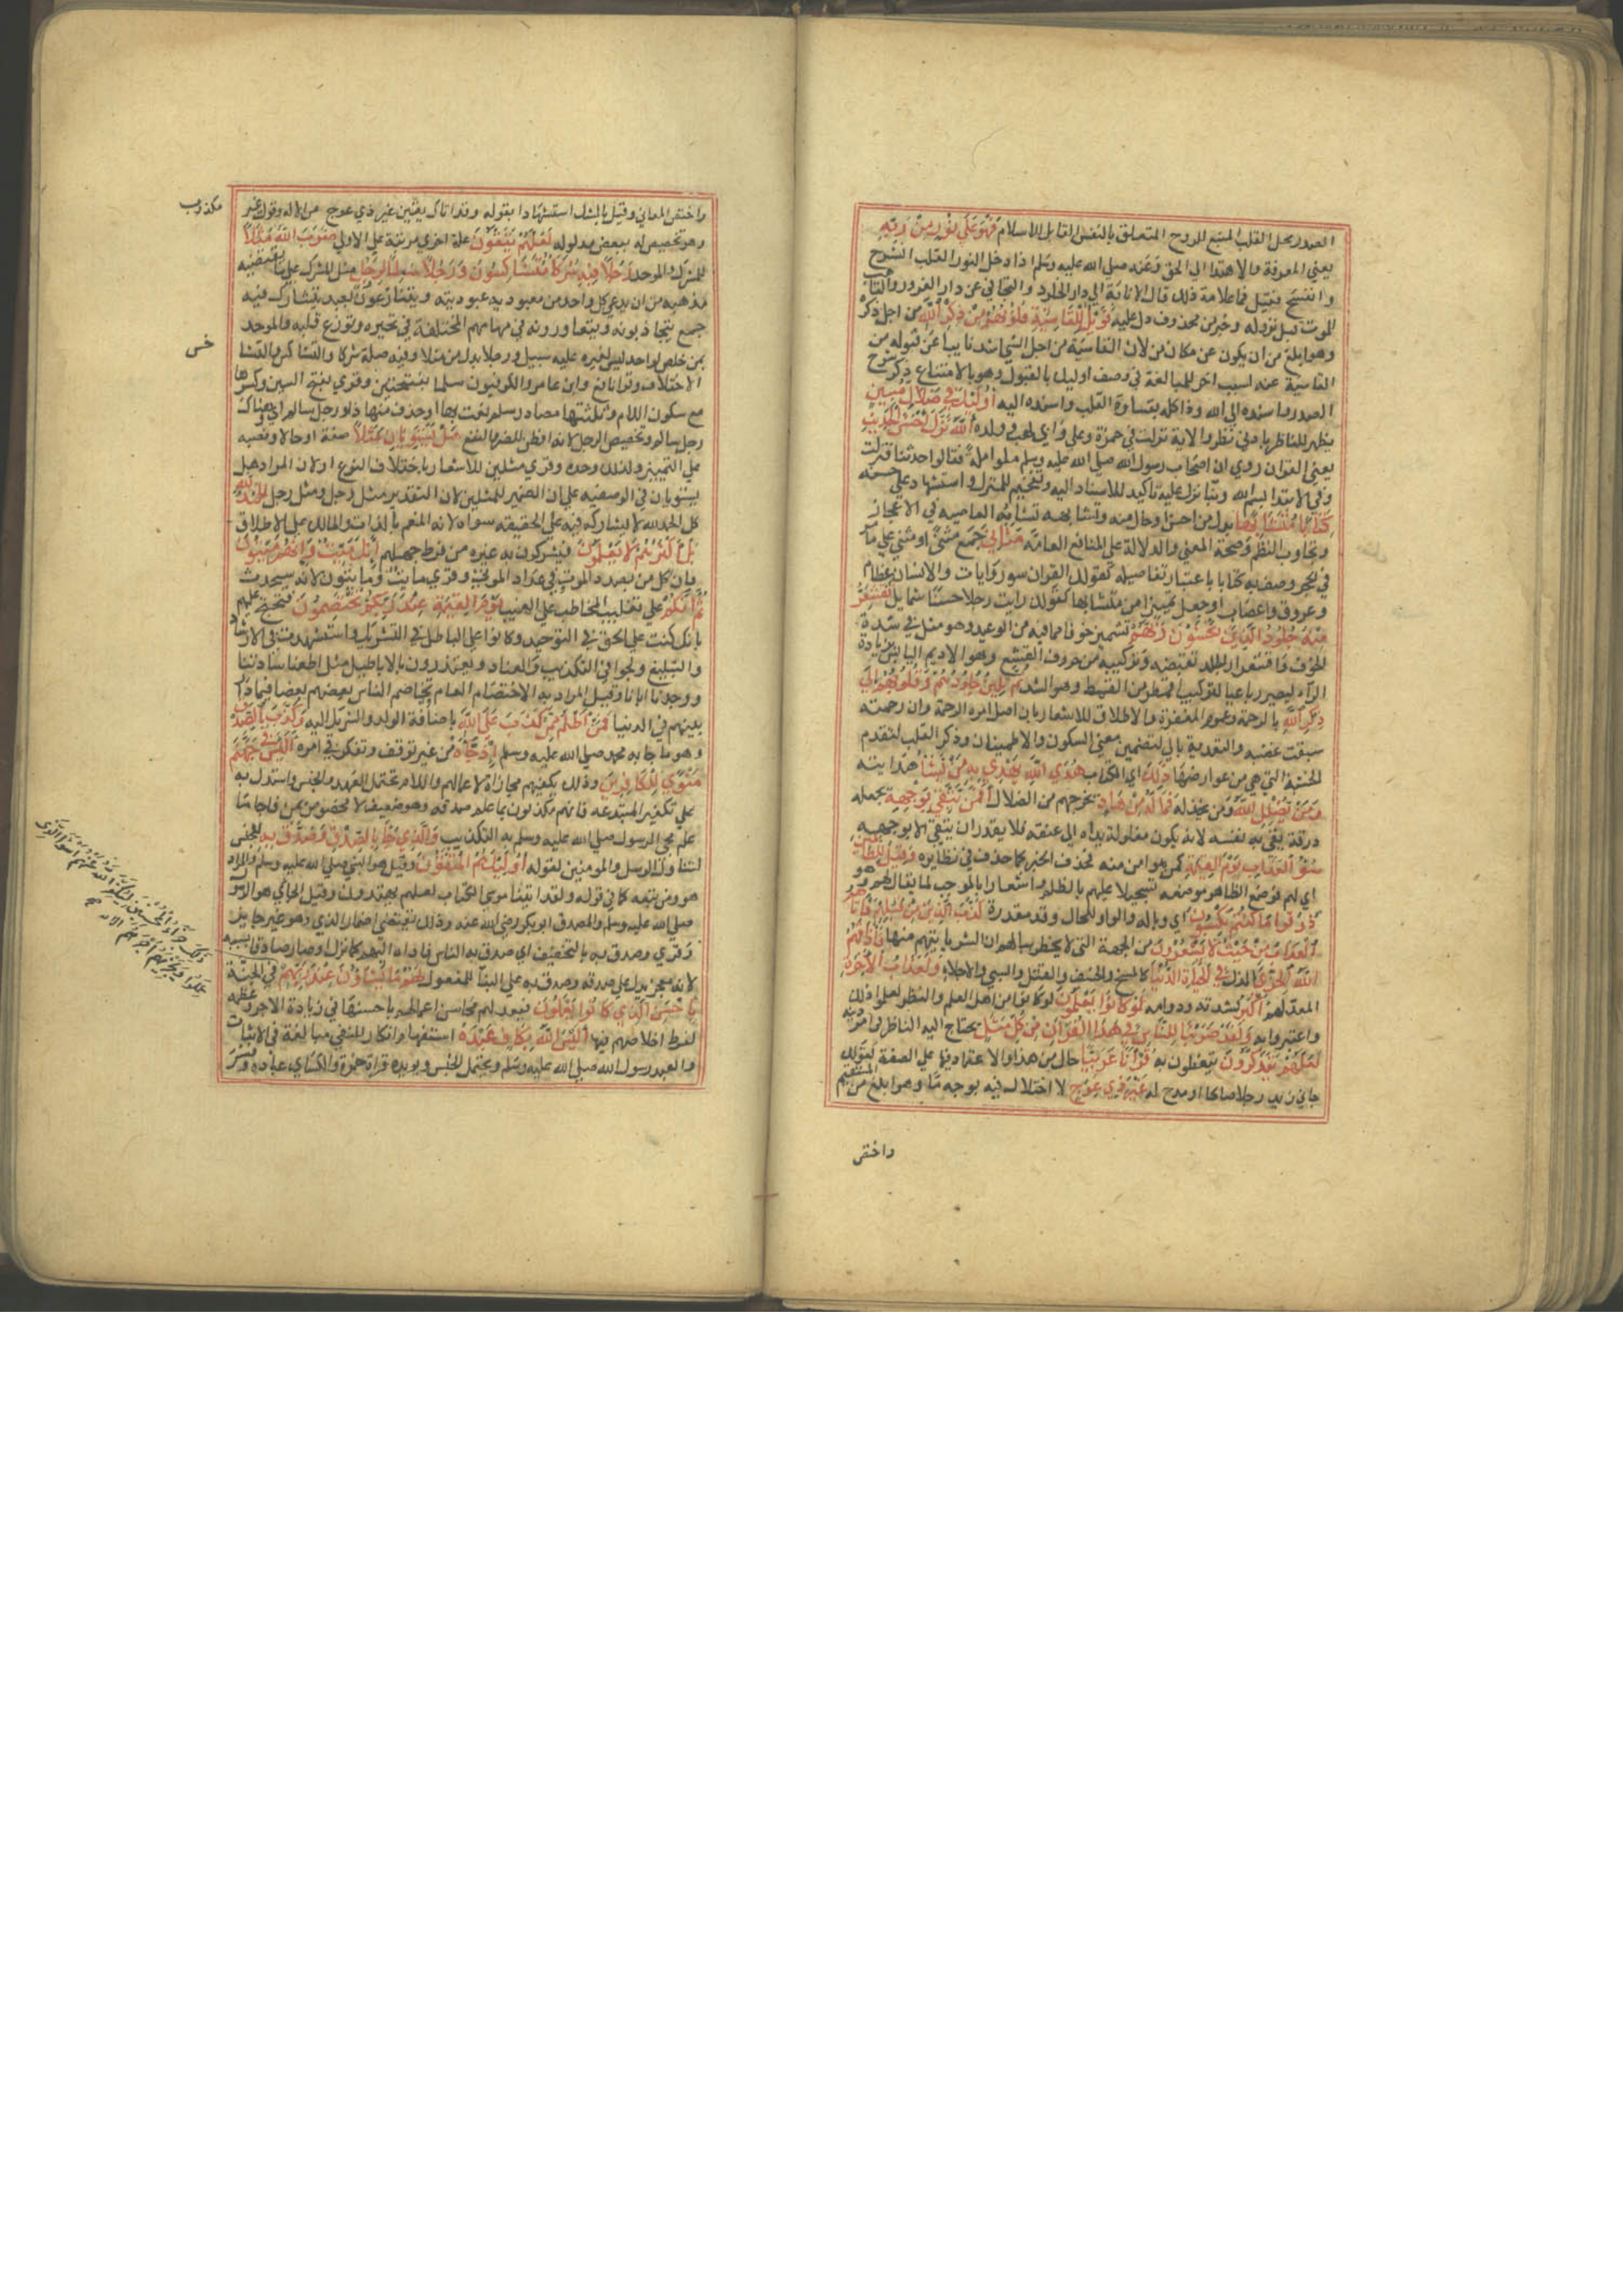 الصدر محل القلب المنبع للروح المتعلق بالنفس القابل للاسلام فَهُوَ عَلَى نُورٍ مِنْ رَبِّهِ
يعني المعرفة والاهتدا الى الحق وعنه صلى الله عليه وسلم اذا دخل النور القلب انشرح
وانفسح فقيل فما علامة ذلك قال الانابة الي دار الخلود والتجافي عن دار الغرور والتأهب
للموت قبل نزوله وخبر من محذوف دل عليه فَوَيْلٌ لِلْقَاسِيَةِ قُلُوبُهُمْ مِنْ ذِكْرِ اللَّهِ من اجل ذكره
وهو ابلغ من ان يكون عن مكان من لان القاسي من اجل الشي اشد تابيا عن قبوله من
القاسي عنه لسبب اخر وللمبالغة في وصف اوليك بالقبول وهولا بالامتناع ذكر شرح
الصدر واسنده الي الله وقابله بقساوة القلب واسنده اليه أُولَئِكَ فِي ضَلَالٍ مُبِينٍ
يظهر للناظر بادني نظر والاية نزلت في حمزة وعلي وابي لهب وولده اللَّهُ نَزَّلَ أَحْسَنَ الْحَدِيثِ
يعني القران روي ان اصحاب رسول الله صلى الله عليه وسلم ملوا ملة فقالوا حدثنا فنزلت
وفي الابتدا باسم الله وبنا نزل عليه تاكيد للاسناد اليه وتفخيم للمنزل واستشهاد علي حسنه
كِتَابًا مُتَشَابِهًا بدل من احسن او حال منه وتشابهه تشابه ابعاضه في الاعجاز
وتجاوب النظم وصحة المعني والدلالة علي المنافع العامة مَثَانِيَ جمع مثني او مثني علي ما مر
في الحجر وصف به كتابا باعتبار تفاصيله كقولك القران سور وايات والانسان عظام
وعروق واعصاب او جعل تمييزا من متشابها كقولك رايت رجلا حسنا شمايل تَقْشَعِرُّ
مِنْهُ جُلُودُ الَّذِينَ يَخْشَوْنَ رَبَّهُمْ تشميز خوفا مما فيه من الوعيد وهو مثل في شدة
الخوف واقشعرار الجلد تقبضه وتركيبه من حروف القشع وهو الاديم اليابس بزيادة
الرآء ليصير رباعيا كتركيب اقمطر من القمط وهو الشد ثُمَّ تَلِينُ جُلُودُهُمْ وَقُلُوبُهُمْ إِلَى
ذِكْرِ اللَّهِ بالرحمة وعموم المغفرة والاطلاق للاشعار بان اصل امره الرحمة وان رحمته
سبقت غضبه والتعدية بالي لتضمين معني السكون والاطمينان وذكر القلب لتقدم
الخشية التي هي من عوارضها ذَلِكَ اي الكتاب هُدَى اللَّهِ يَهْدِي بِهِ مَنْ يَشَاءُ هدايته
وَمَنْ يُضْلِلِ اللَّهُ ومن يخذله فَمَا لَهُ مِنْ هَادٍ يخرجهم من الضلال أَفَمَنْ يَتَّقِي بِوَجْهِهِ يجعله
درقة يقي به نفسه لانه يكون مغلولة يداه الى عنقه فلا يقدر ان يتقي الا بوجهه
سُوءَ الْعَذَابِ يَوْمَ الْقِيَمَةِ كمن هو امن منه فحذف الخبر كما حذف في نظايره وَقِيلَ لِلظَّالِمِينَ
اي لهم فوضع الظاهر موضعه تسجيلا عليهم بالظلم واشعارا بالموجب لما يقال لهم وهو
ذُوقُوا مَا كُنْتُمْ تَكْسِبُونَ اي وباله والواو للحال وقد مقدرة كَذَّبَ الَّذِينَ مِنْ قَبْلِهِمْ فَأَتَاهُمُ
الْعَذَابُ مِنْ حَيْثُ لَا يَشْعُرُونَ من الجهة التي لا يخطر ببالهم ان الشر ياتيهم منها فَأَذَاقَهُمُ
اللَّهُ الْخِزْيَ الذل فِي الْحَيَاةِ الدُّنْيَا كالمسخ والخسف والقتل والسبي والاجلاء وَلَعَذَابُ الْآخِرَةِ
المعد لهم أَكْبَرُ لشدته ودوامه لَوْ كَانُوا يَعْلَمُونَ لو كانوا من اهل العلم والنظر لعلموا ذلك
واعتبروا به وَلَقَدْ ضَرَبْنَا لِلنَّاسِ فِي هَذَا الْقُرْآنِ مِنْ كُلِّ مَثَلٍ يحتاج اليه الناظر في امر دينه
لَعَلَّهُمْ يَتَذَكَّرُونَ يتعظون به قُرْآنًا عَرَبِيًّا حال من هذا والاعتماد فيها علي الصفة كقولك
جاني زيد رجلا صالحا او مدح له غَيْرَ ذِي عِوَجٍ لا اختلال فيه بوجه ما وهو ابلغ من المستقيم
واختص
واختص بالمعاني وقيل بالشك استشهادا بقوله وقد اتاك يقين غير ذي عوج من الاله وقول غير
مكذوب
وهو تخصيص له ببعض مدلوله لَعَلَّهُمْ يَتَّقُونَ علة اخرى مرتبة علي الاولي ضَرَبَ اللَّهُ مَثَلًا
للمشرك والموحد رَجُلًا فِيهِ شُرَكَاءُ مُتَشَاكِسُونَ وَرَجُلًا سَلَمًا لِرَجُلٍ مثل المشرك علي ما يقتضيه
مذهبه من ان يدعي كل واحد من معبوديه عبوديته ويتنازعون بعبد يتشارك فيه
جمع يتجاذبونه ويتعاورونه في مهامهم المختلفة في تحيره وتوزع قلبه والموحد
بمن خلص لواحد ليس لغيره عليه سبيل ورجلا بدل من مثلا وفيه صلة شركا والتشاكس والتشا
خس
الاختلاف وقرا نافع وابن عامر والكوفيون سلما بفتحتين وقري بفتح السين وكسرها
مع سكون اللام وثلثتها مصادر سلم نعت بها او حذف منها ذا ورجل سالم اي وهناك
رجل سالم وتخصيص الرجل لانه افطن للضر والنفع هَلْ يَسْتَوِيَانِ مَثَلًا صفة او حالا ونصبه
علي التمييز ولذلك وحده وقري مثلين للاشعار باختلاف النوع او لان المراد هل
يستويان في الوصفين علي ان الضمير للمثلين لان التقدير مثل رجل ومثل رجل الْحَمْدُ لِلَّهِ
كل الحمد له لا يشاركه فيه علي الحقيقة سواه لانه المنعم بالذات والمالك علي الاطلاق
بَلْ أَكْثَرُهُمْ لَا يَعْلَمُونَ فيشركون به غيره من فرط جهلهم إِنَّكَ مَيِّتٌ وَإِنَّهُمْ مَيِّتُونَ
فان كل من بصدد الموت في عداد الموتى وقري مايت ومايتون لانه سيحدث
ثُمَّ إِنَّكُمْ علي تغليب المخاطب علي الغيب يَوْمَ الْقِيَمَةِ عِنْدَ رَبِّكُمْ تَخْتَصِمُونَ فتحتج عليهم
بانك كنت علي الحق في التوحيد وكانوا علي الباطل في التشريك واجتهدت في الارشاد
والتبليغ ولجوا في التكذيب والعناد ويعتذرون بالاباطيل مثل اطعنا سادتنا
ووجدنا اباءنا وقيل المراد به الاختصام العام يخاصم الناس بعضهم بعضا فيما دار
بينهم في الدنيا فَمَنْ أَظْلَمُ مِمَّنْ كَذَبَ عَلَى اللَّهِ باضافة الولد والشريك اليه وَكَذَّبَ بِالصِّدْقِ
وهو ما جا به محمد صلى الله عليه وسلم إِذْ جَاءَهُ من غير توقف وتفكر في امره أَلَيْسَ فِي جَهَنَّمَ
مَثْوًى لِلْكَافِرِينَ وذلك يكفيهم مجازاة لاعمالهم واللام تحتمل العهد والجنس واستدل به
علي تكفير المبتدعة فانهم مكذبون بما علم صدقه وهو ضعيف لانه مخصوص بمن فاجا ما
علم مجي الرسول صلى الله عليه وسلم به بالتكذيب وَالَّذِي جَاءَ بِالصِّدْقِ وَصَدَّقَ بِهِ للجنس
ليتناول الرسل والمومنين لقوله أُولَئِكَ هُمُ الْمُتَّقُونَ وقيل هو النبي صلى الله عليه وسلم والمراد
هو ومن تبعه كما في قوله ولقد اتينا موسى الكتاب لعلهم يهتدون وقيل الجائي هو الرسول
صلى الله عليه وسلم والمصدق ابو بكر رضي الله عنه وذلك يقتضي اضمار الذي وهو غير جايز
وقري وصدق به بالتخفيف اي صدق به الناس فاداه اليهم كما نزل او صار صادقا بسببه
لانه معجز يدل علي صدقه وصدق به علي البنا للمفعول لَهُمْ مَا يَشَاؤُنَ عِنْدَ رَبِّهِمْ في الجنة
ذَلِكَ جَزَاءُ الْمُحْسِنِينَ لِيُكَفِّرَ اللَّهُ عَنْهُمْ أَسْوَأَ الَّذِي
عَمِلُوا وَيَجْزِيَهُمْ أَجْرَهُمْ
بِأَحْسَنِ الَّذِي كَانُوا يَعْمَلُونَ فيعد لهم محاسن اعمالهم باحسنها في زيادة الاجر وعظمه
لفرط اخلاصهم فيها أَلَيْسَ اللَّهُ بِكَافٍ عَبْدَهُ استفهام انكار للنفي مبالغة في الاثبات
والعبد رسول الله صلى الله عليه وسلم ويحتمل الجنس ويويده قراة حمزة والكسائي عباده وفسر